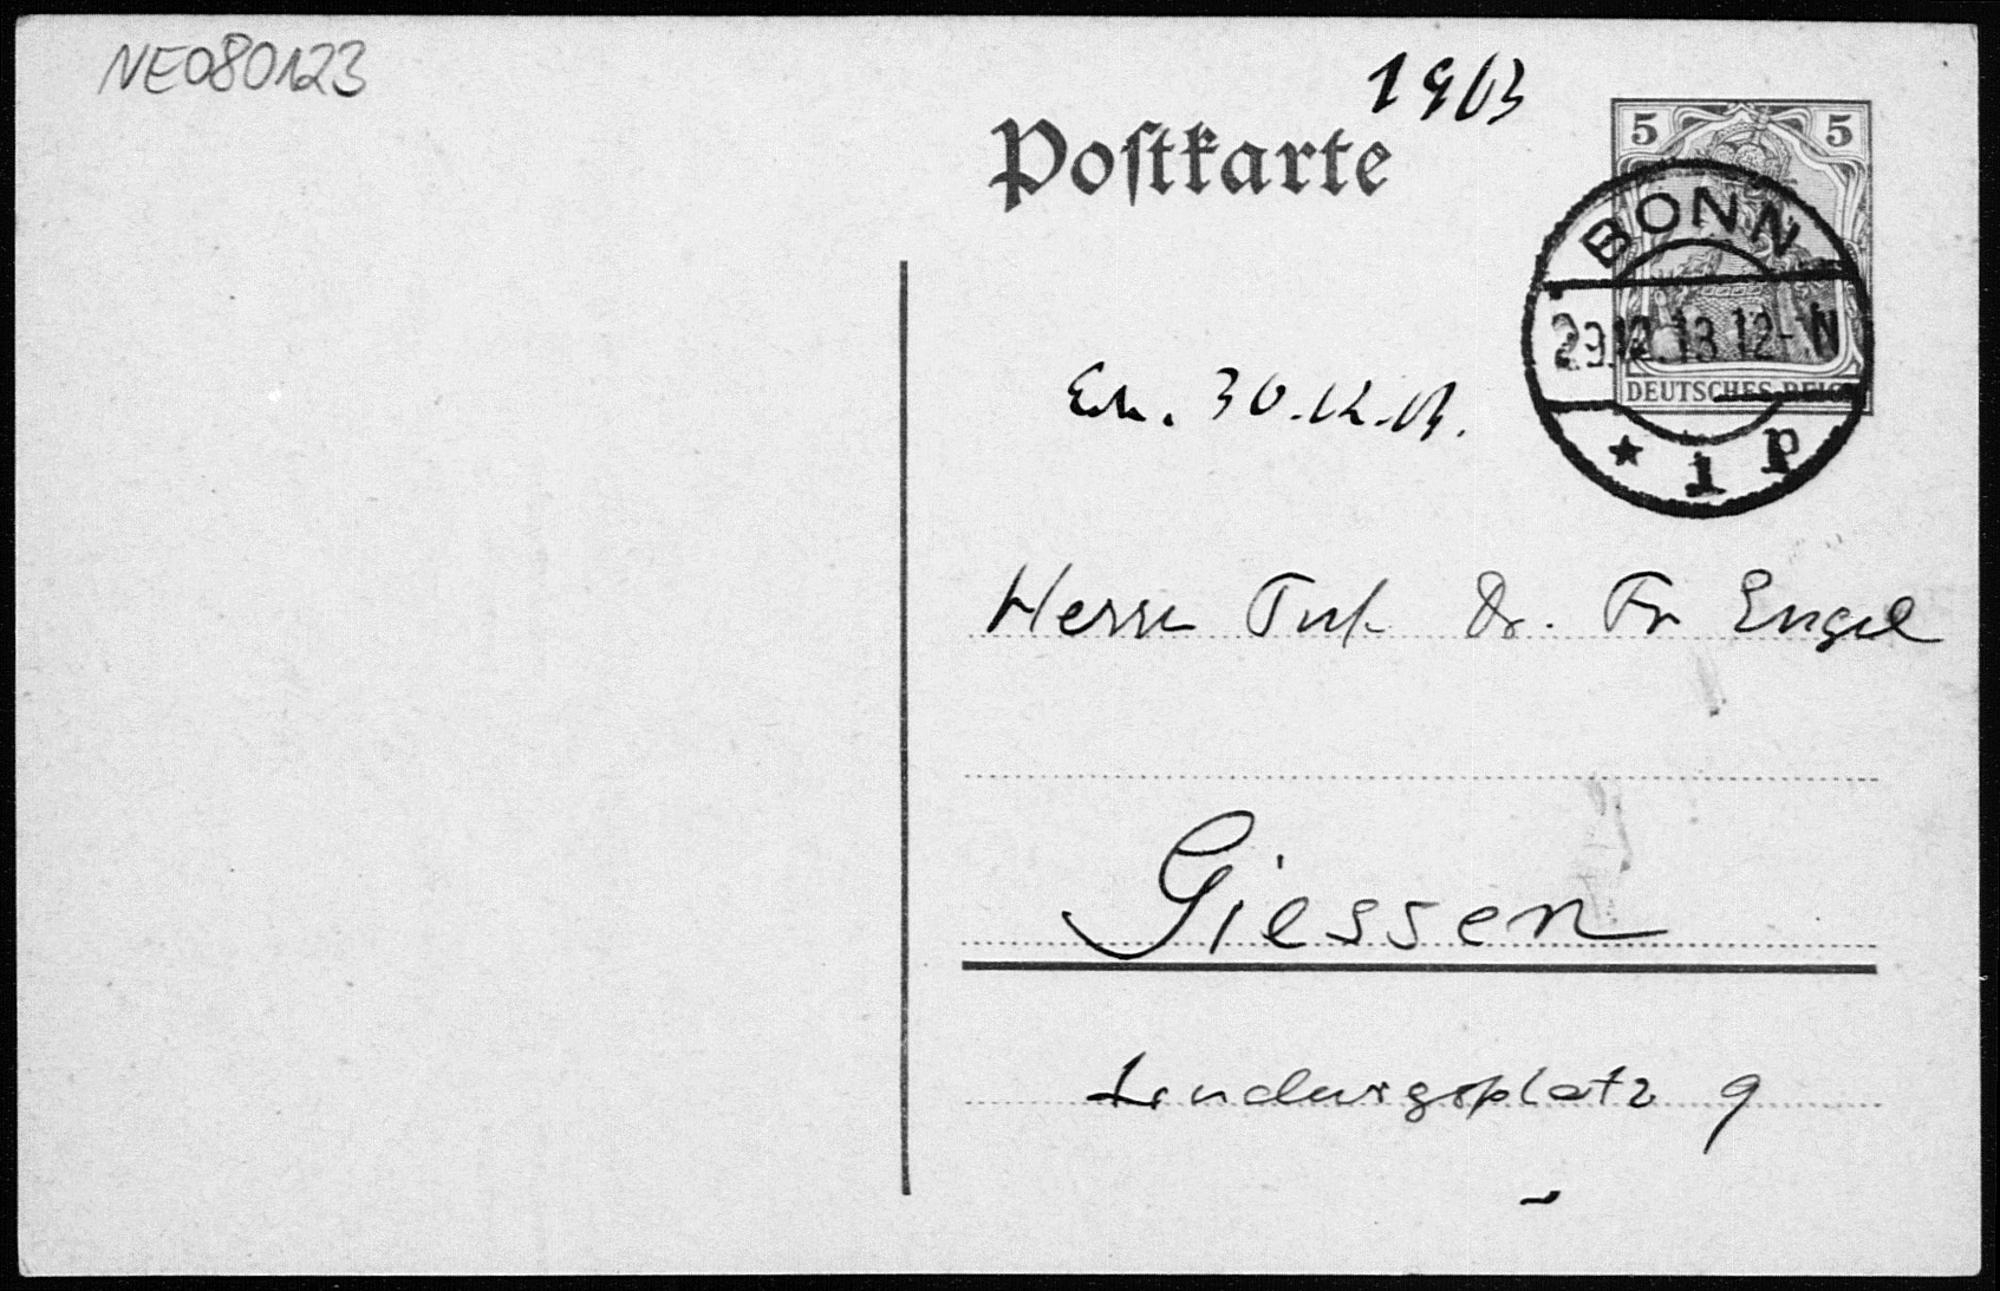 NE080123
1913
Poſtkarte
5 5
BONN
29.12.13.12-1N
DEUTSCHES REICH
* 1 p
Erh. 30.12.13.
Herrn Prof. Dr. Fr Engel
Giessen
9